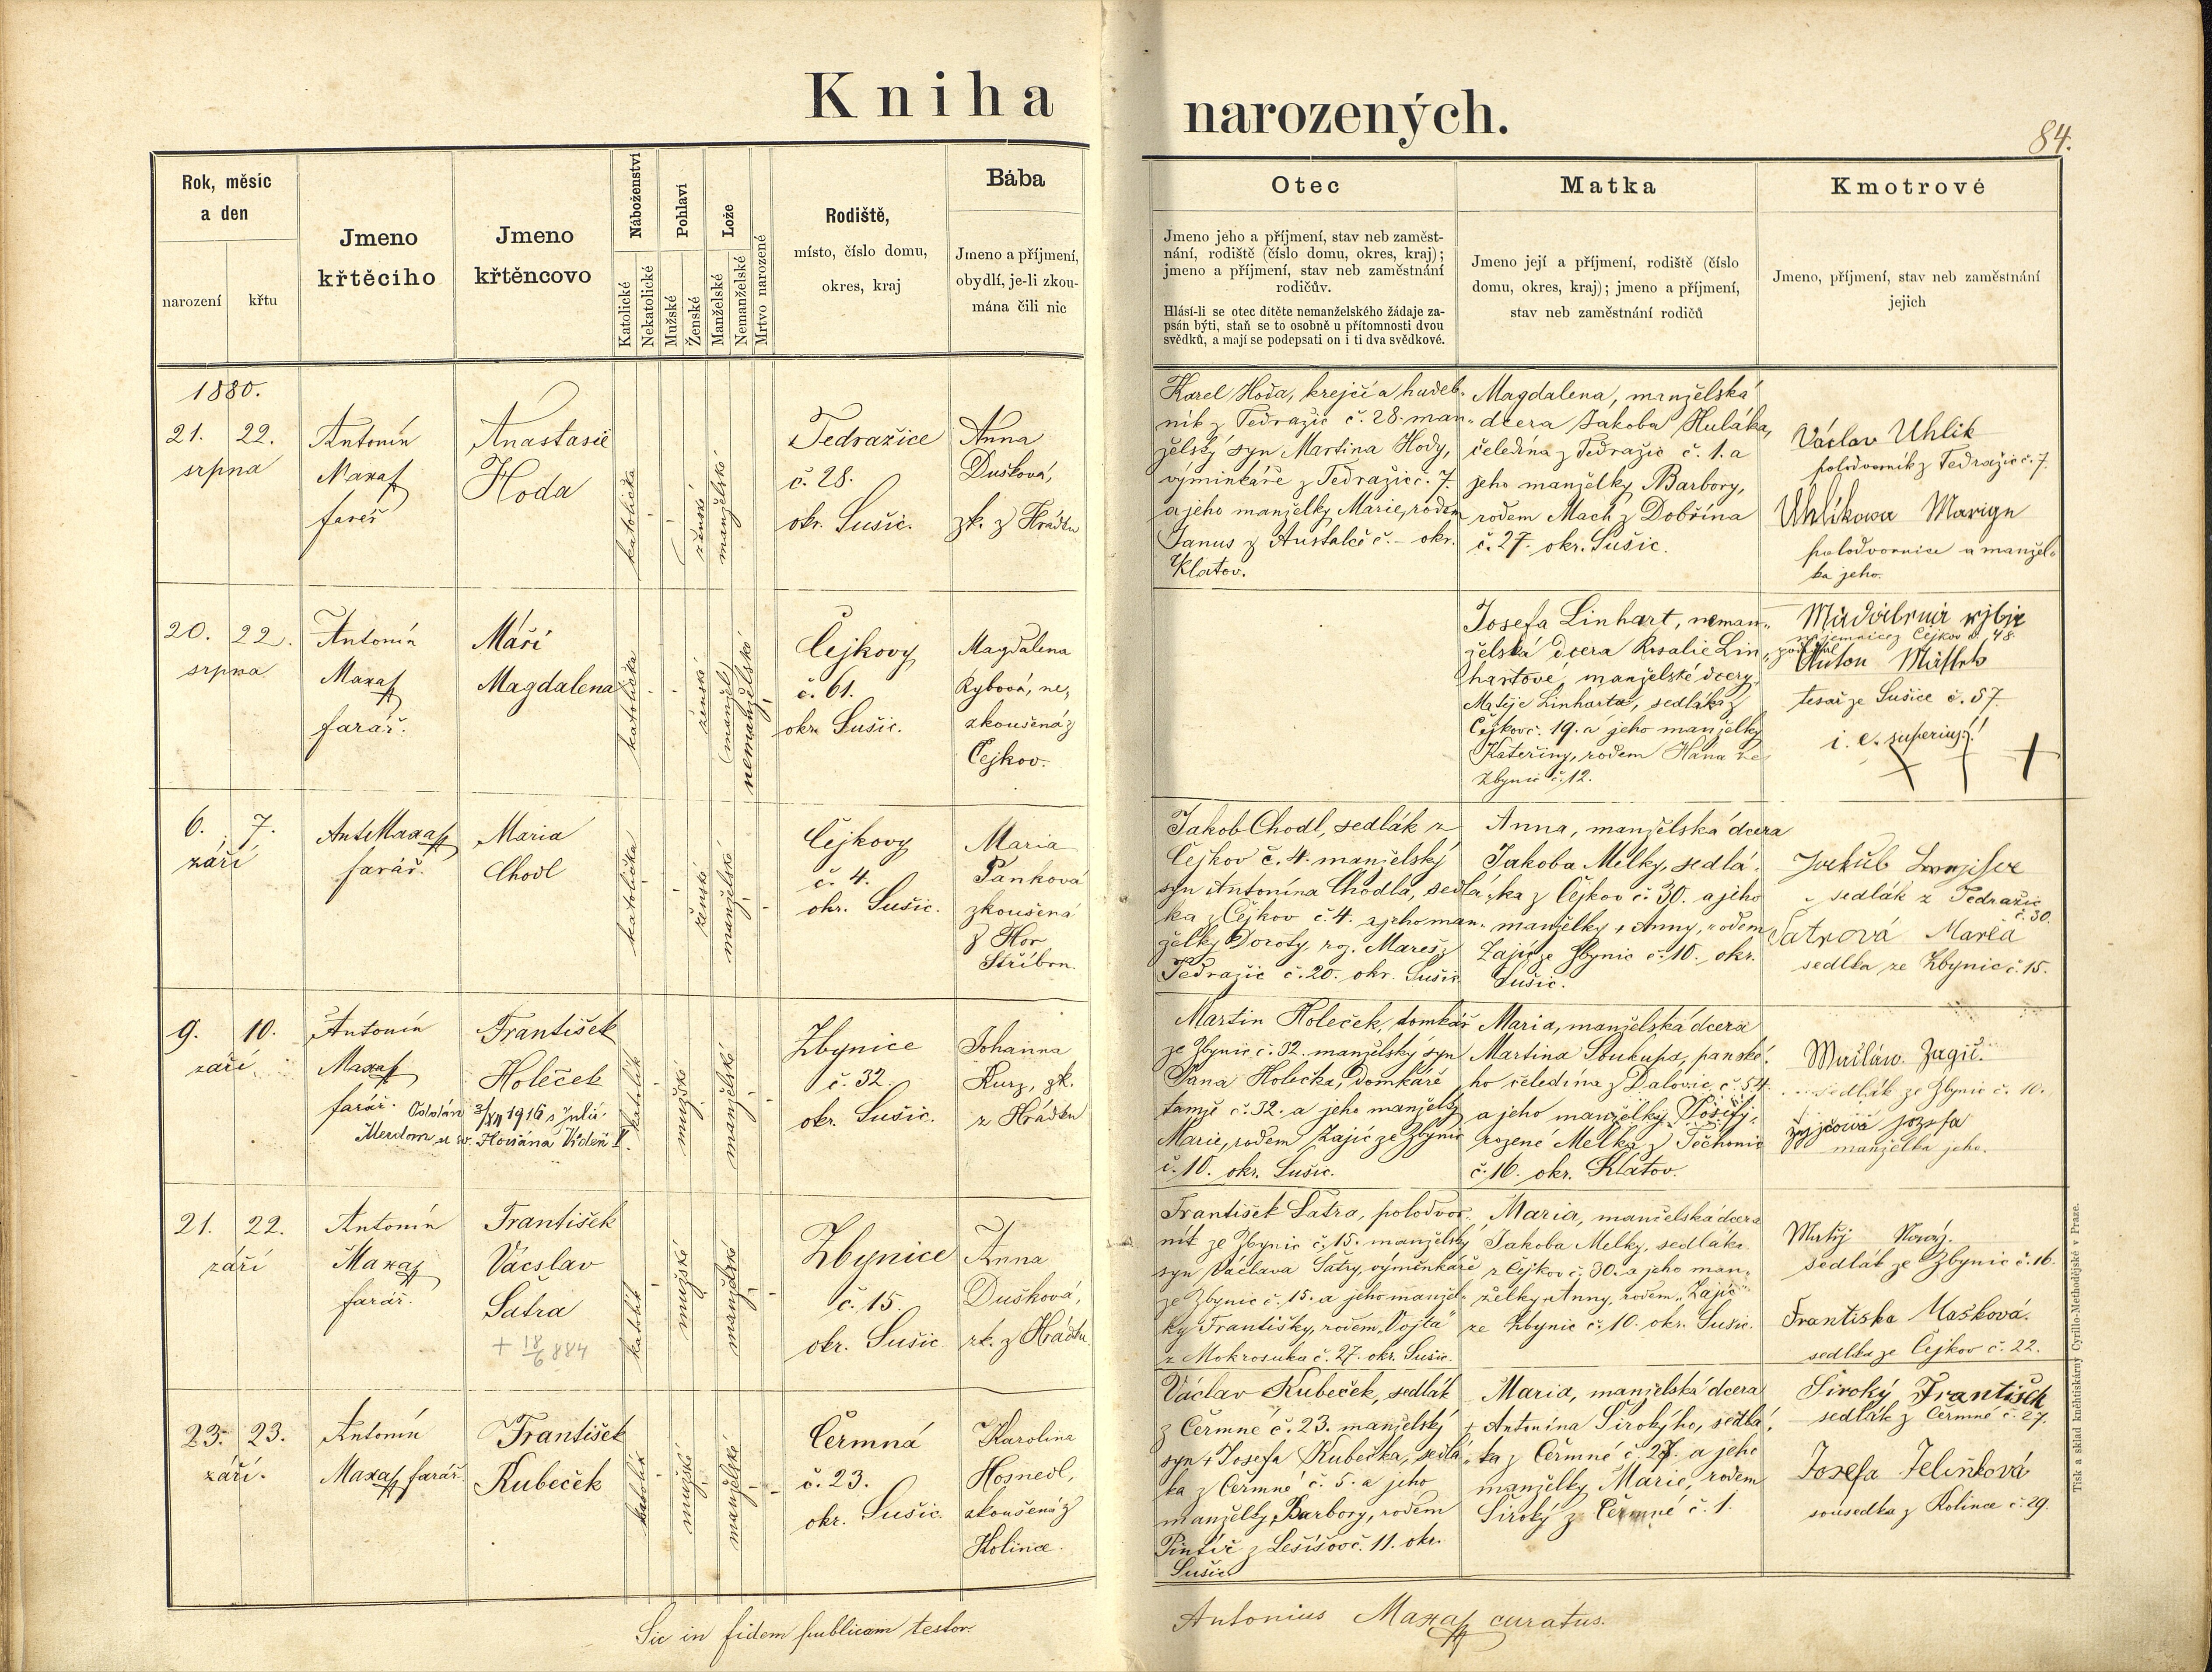 Kniha narozených.
84.
Rok, měsíc
a den
narození
křtu
Jmeno
křtěcího
Jmeno
křtěncovo
Náboženství
Katolické
Nekatolické
Pohlaví
Mužské
Ženské
Lože
Manželské
Nemanželské
Mrtvo narozené
Rodiště,
místo, číslo domu,
okres, kraj
Bába
Jmeno a příjmení,
obydlí, je-li zkou-
mána čili nic
Otec
Jmeno jeho a příjmení, stav neb zaměst-
nání, rodiště (číslo domu, okres, kraj);
jmeno a příjmení, stav neb zaměstnání
rodičův.
Hlásí-li se otec dítěte nemanželského žádaje za-
psán býti, staň se to osobně u přítomnosti dvou
svědků, a mají se podepsati on i ti dva svědkové.
Matka
Jmeno její a příjmení, rodiště (číslo
domu, okres, kraj); jmeno a příjmení,
stav neb zaměstnání rodičů
Kmotrové
Jmeno, příjmení, stav neb zaměstnání
jejich
1880.
21. 22.
srpna
Antonín
Maxa
farář
Anastasie
Hoda
katolička
ženské
manželské
Tedražice
č. 28.
okr. Sušic.
Anna
Dušková,
zk. z Hrádku
Karel Hoda, krejčí a hudeb-
ník z Tedražic č. 28. man-
želský syn Martina Hody,
výminkáře z Tedražic č. 7.
a jeho manželky Marie, rodem
Janus z Austalče č. - okr.
Klatov.
Magdalena, manželská
dcera Jakoba Huláka,
čeledína z Tedražic č. 1. a
jeho manželky Barbory,
rodem Mach z Dobřína
č. 27. okr. Sušic.
Václav Uhlik
polodvorník z Tedražic č. 7.
Uhlíkova
polodvornice a manžel-
ka jeho.
20. 22.
srpna
Antonín
Maxa
farář.
Máří
Magdalena
katolička
ženské
(manžel)
nemanželské
Čejkovy
č. 61.
okr. Sušic.
Magdalena
Rybová, ne-
zkoušená z
Čejkov.
Josefa Linhart, neman-
želská dcera Rosalie Lin-
hartové, manželské dcery
Matěje Linharta, sedláka z
Čejkov č. 19. a jeho manželky
Kateřiny, rodem Hána ze
Zbynic č. 12.
Čejkov č. 48.
Anton
tesař ze Sušice č. 57.
i. e. superius!
6. 7.
září
Ant. Maxa
farář.
Maria
Chodl
katolička
ženské
manželské
Čejkovy
č. 4.
okr. Sušic.
Maria
Panková
zkoušená
z Hor
Stříbrn.
Jakob Chodl, sedlák z
Čejkov č. 4. manželský
syn Antonína Chodla, sedlá-
ka z Čejkov č. 4. a jeho man-
želky Doroty, roz. Mareš z
Tedražic č. 20. okr. Sušic.
Anna, manželská dcera
Jakoba Melky, sedlá-
ka z Čejkov č. 30. a jeho
manželky Anny, rodem
Zajíc ze Zbynic č. 10. okr.
Sušic.
Jakub
sedlák z Tedražic
č. 30.
Šatrová Maria
sedlka ze Zbynic č. 15.
9. 10.
září
Antonín
Maxa
farář.
František
Holeček
1916
Vídeň V.
katolík
mužské
manželské
Zbynice
č. 32.
okr. Sušic.
Johanna
Kurz, zk.
z Hrádku
Martin Holeček, domkář
ze Zbynic č. 32. manželský syn
Jana Holečka, domkáře
tamže č. 32. a jeho manželky
Marie, rodem Zajíc ze Zbynic
č. 10. okr. Sušic.
Maria, manželská dcera
Martina Soukupa, panské-
ho čeledína z Dalovic č. 54.
a jeho manželky Josefy,
rozené Melka z Těchonic
č. 16. okr. Klatov.
sedlák ze Zbynic č. 10.
manželka jeho.
21. 22.
září
Antonín
Maxa
farář.
František
Vácslav
Šatra
+ 18/6 884
katolík
mužské
manželské
Zbynice
č. 15.
okr. Sušic
Anna
Dušková,
zk. z Hrádku
František Šatra, polodvor-
ník ze Zbynic č. 15. manželský
syn Václava Šatry, výměnkáře
ze Zbynic č. 15. a jeho manžel-
ky Františky, rodem „Vojta"
z Mokrosuka č. 27. okr. Sušic.
Maria, manželská dcera
Jakoba Melky, sedláka
z Čejkov č. 30. a jeho man-
želky Anny, rodem „Zajíc"
ze Zbynic č. 10. okr. Sušic.
Matěj
sedlák ze Zbynic č. 16.
Františka Mašková.
sedlka ze Čejkov č. 22.
23. 23.
září.
Antonín
Maxa farář.
František
Kubeček
katolík
mužské
manželské
Čermná
č. 23.
okr. Sušic.
Karolina
Hosnedl,
zkoušená z
Kolince.
Václav Kubeček, sedlák
z Čermné č. 23. manželský
syn Josefa Kubečka, sedlá-
ka z Čermné č. 5. a jeho
manželky Barbory, rodem
č. 11. okr.
Sušic
Maria, manželská dcera
Antonína Širokýho, sedlá-
ka z Čermné č. 27. a jeho
manželky Marie, rodem
Široký z Čermné č. 1.
Široký František
sedlák z Čermné č. 27.
Josefa Jelínková
sousedka z Kolince č. 29.
Sic in fidem publicam testor.
Antonius Maxa curatus.
Tisk a sklad kněhtiskárny Cyrillo-Methodějské v Praze.